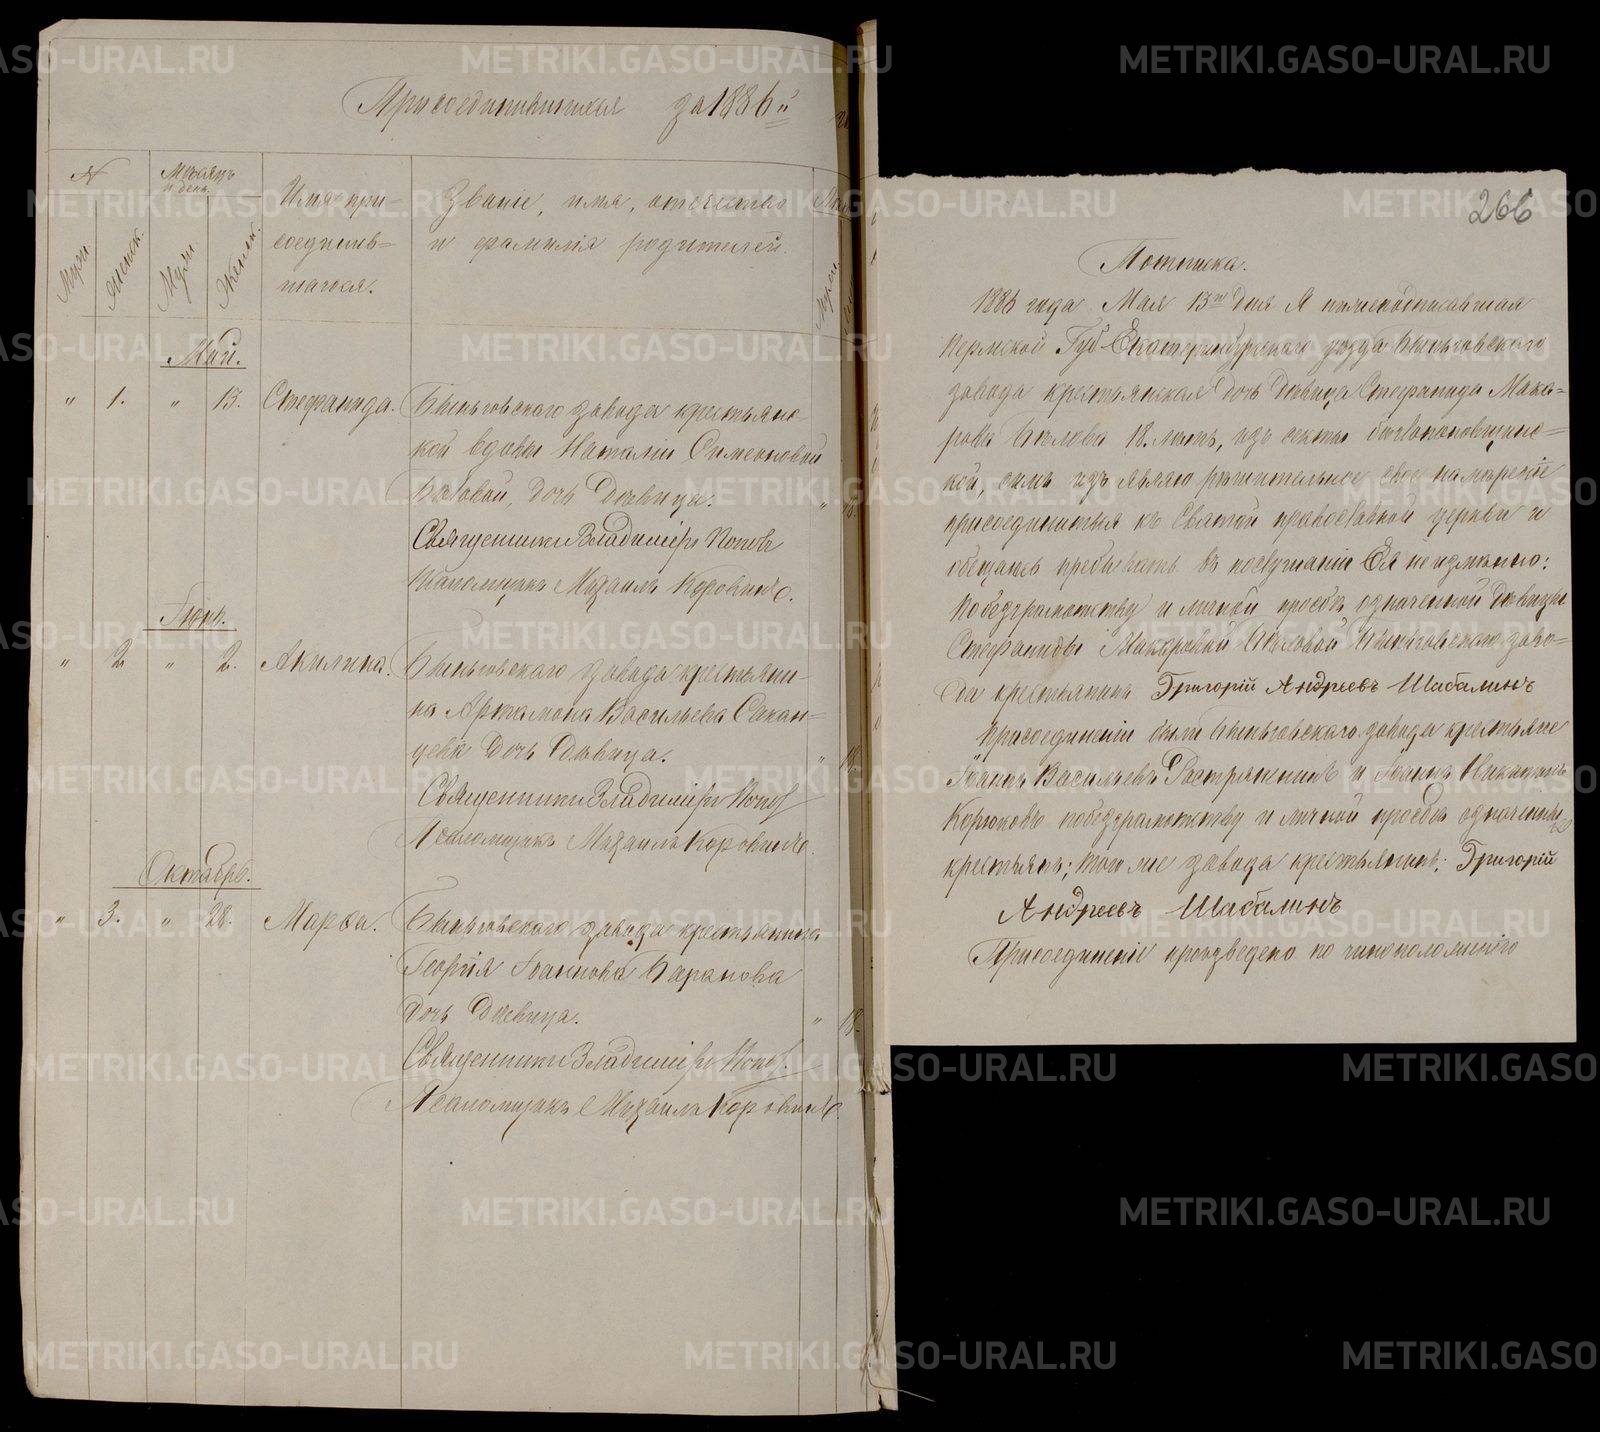 Присоединившихся за 1886 й
N
Месяцъ
и день.
Муж.
Женск.
Муж.
Женск.
Имя при-
соединив-
шагося.
Званіе, имя, отчество
и фамилія родителей.
Май.
" 1. " 13. Стефанида. Быньговскаго завода крестьянс-
кой вдовы Наталіи Симеоновой
дочь девица. " 18.
Священникъ Владиміръ Поповъ
Псаломщикъ Михаилъ Коровинъ.
Іюнь.
" 2 " 2. Акилина. Быньговскаго завода крестьяни-
на Артамона Васильева
дочь девица. " 18.
Священникъ Владиміръ Поповъ
Псаломщикъ Михаилъ Коровинъ.
Октябрь.
" 3. " 28. Марѳа. Быньговскаго завода крестьянина
Георгія Іоаннова Баранова
дочь девица. " 18.
Священникъ Владиміръ Поповъ.
Псаломщикъ Михаилъ Коровинъ.
266
Подписка.
1886 года Мая 13го дня Я нижеподписавшаяся
Пермской Губ. Екатеринбургскаго уезда Быньговскаго
завода крестьянская дочь девица Стефанида Мака-
рова Белова 18. летъ, изъ секты беглопоповщинс-
кой, симъ изъявляю решительное свое намереніе
присоединиться къ Святой православной церкви и
обещаюсь пребывать въ послушаніи Ея неизменно:
по безграмотству и личной просьбе означенной девицы
Стефаниды Макаровой Беловой Быньговскаго заво-
да крестьянинъ Григорій Андреевъ Шабалинъ
При соединеніи были Быньговскаго завода крестьяне
Іоаннъ Васильевъ и Іоаннъ
Корюковъ по безграмотству и личной просьбе означенныхъ
крестьянъ; того же завода крестьянинъ: Григорій
Андреевъ Шабалинъ
Присоединеніе произведено по чиноположенію
METRIKI.GASO-URAL.RU